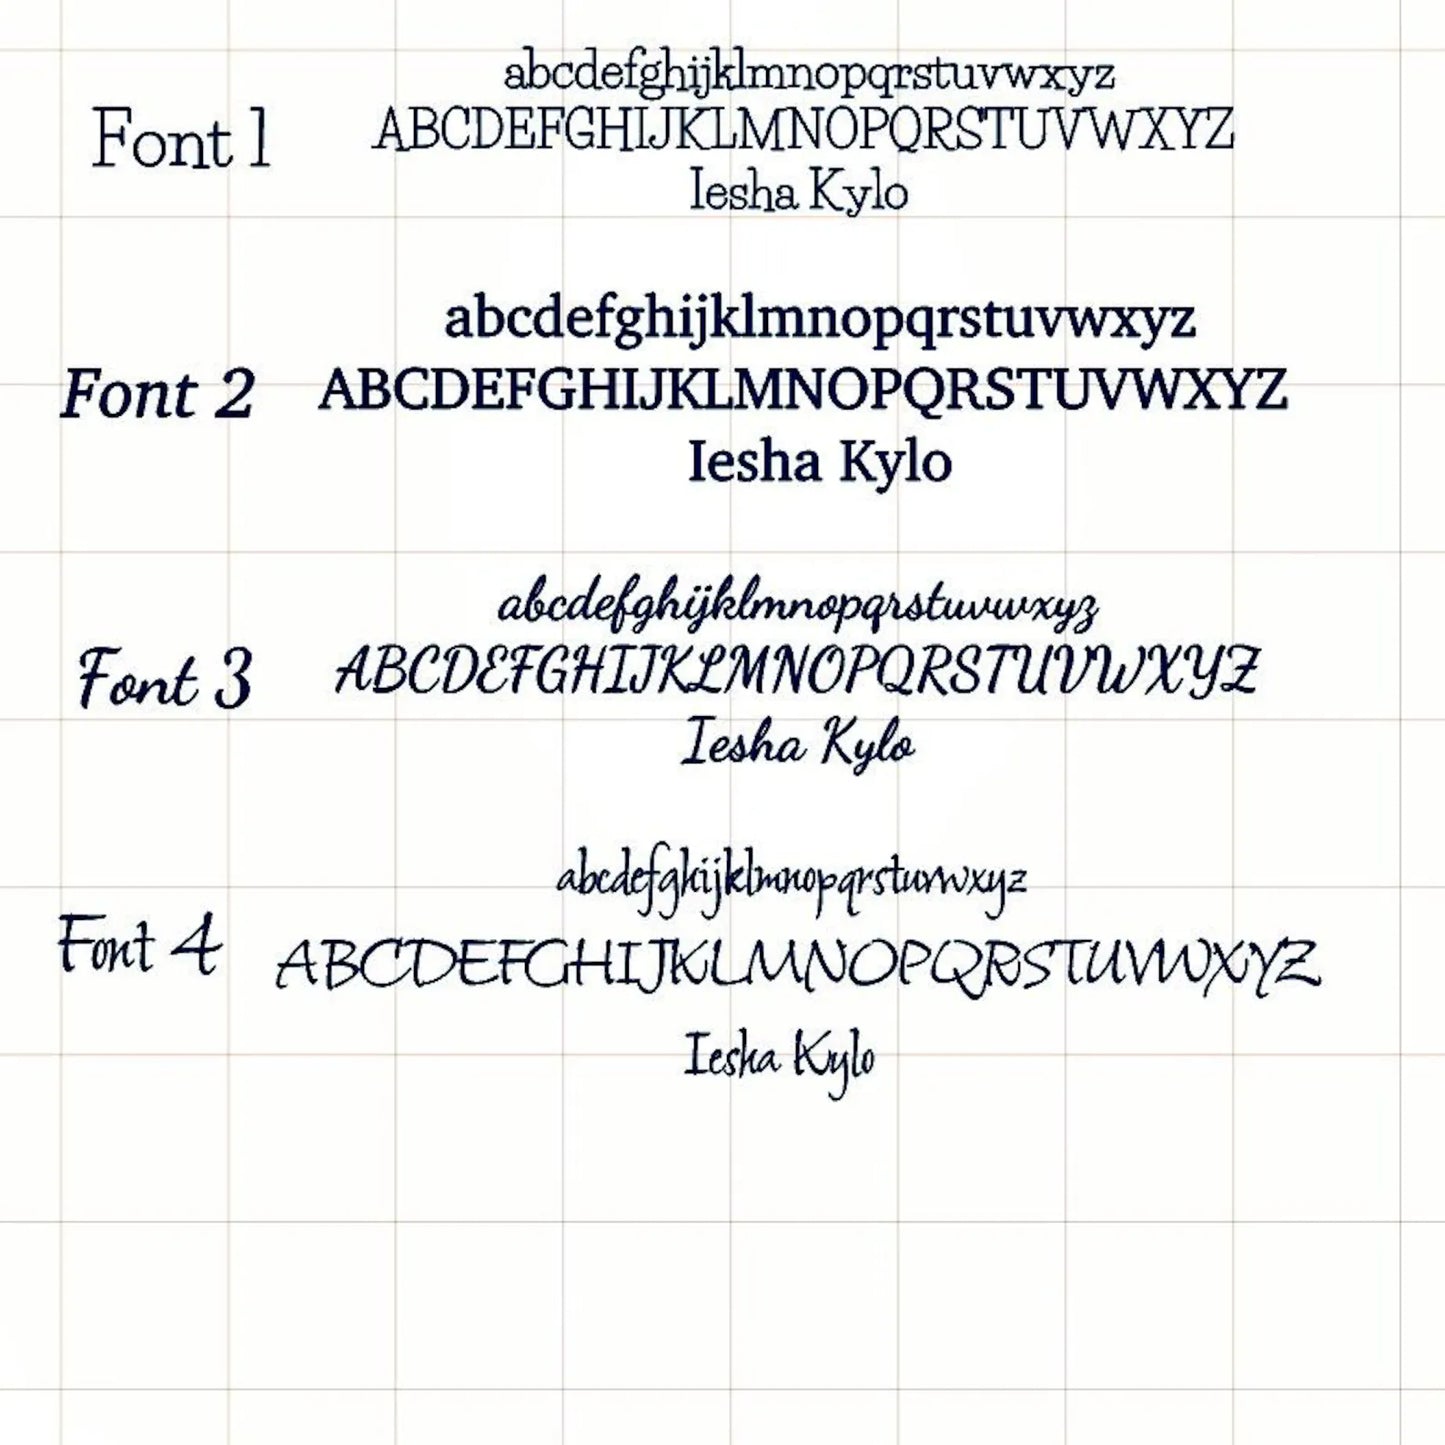 abcdefghijklmnopqrstuvwxyz
Font 1 ABCDEFGHIJKLMNOPQRSTUVWXYZ
Iesha Kylo
abcdefghijklmnopqrstuvwxyz
Font 2 ABCDEFGHIJKLMNOPQRSTUVWXYZ
Iesha Kylo
abcdefghijklmnopqrstuvwxyz
Font 3 ABCDEFGHIJKLMNOPQRSTUVWXYZ
Iesha Kylo
abcdefghijklmnopqrstuvwxyz
Font 4 ABCDEFGHIJKLMNOPQRSTUVWXYZ
Iesha Kylo